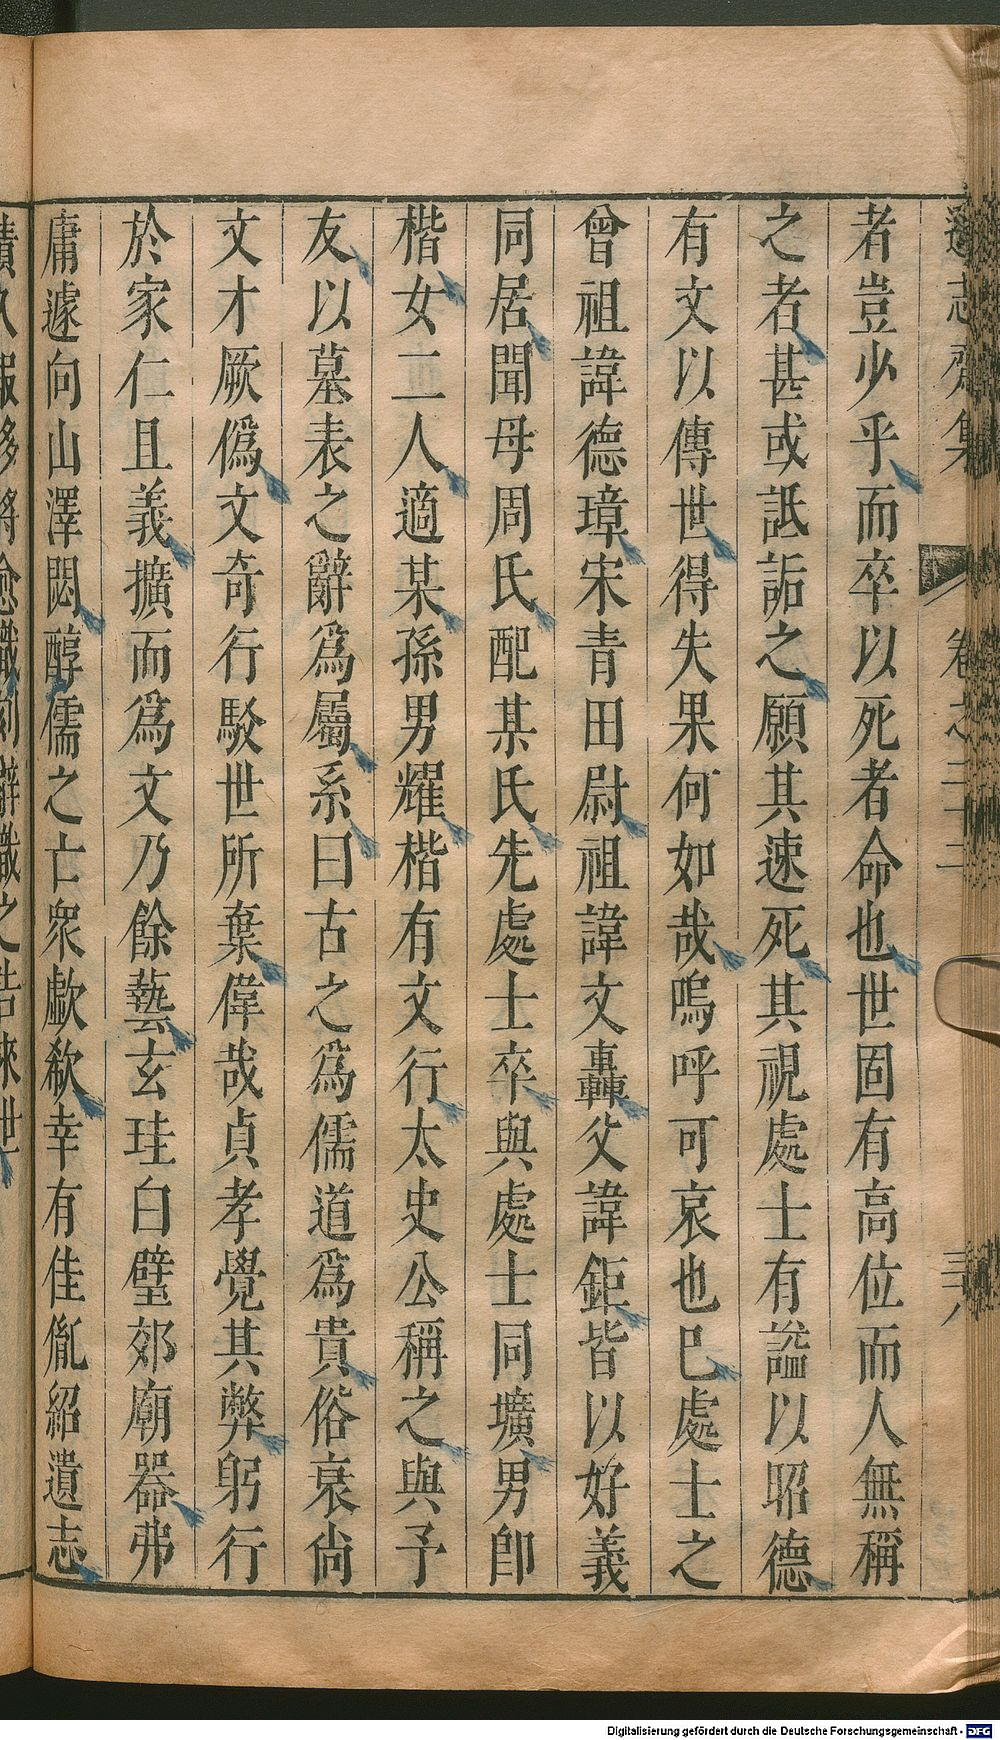 遜志齋集 卷之二十二 三八
者豈少乎而卒以死者命也世固有高位而人無稱
之者甚或詆詬之願其速死其視處士有謚以昭德
有文以傳世得失果何如哉嗚呼可哀也已處士之
曾祖諱德璋宋青田尉祖諱文轟父諱鉅皆以好義
同居聞母周氏配某氏先處士卒與處士同壙男卽
楷女二人適某孫男耀楷有文行太史公稱之與予
友以墓表之辭爲屬系曰古之爲儒道爲貴俗衰尙
文才厥僞文奇行駁世所棄偉哉貞孝覺其弊躬行
於家仁且義擴而爲文乃餘藝玄珪白璧郊廟器弗
庸遽向山澤閟醇儒之亡衆歔欷幸有佳胤紹遺志
Digitalisierung gefördert durch die Deutsche Forschungsgemeinschaft - DFG